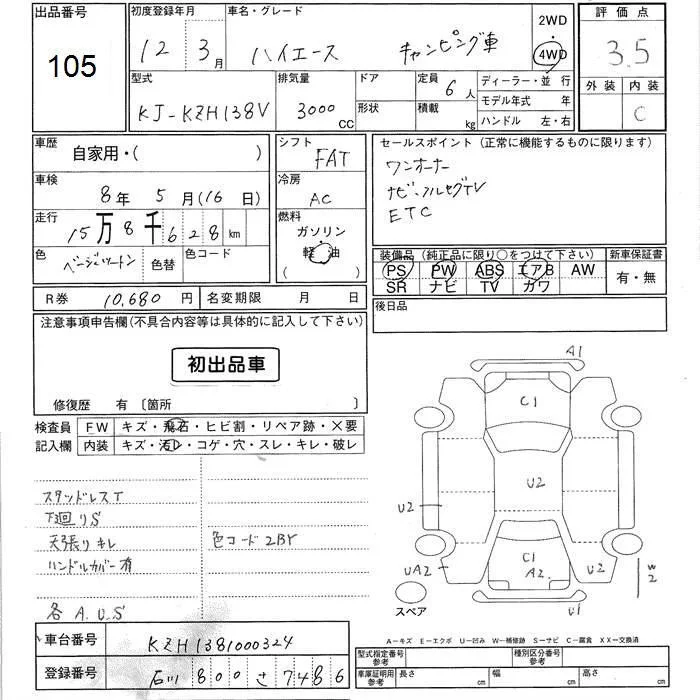 出品番号
105
初度登録年月
12年 3月
車名・グレード
ハイエース キャンピング車
2WD
・
4WD
評価点
3.5
外装 内装
C
型式
KJ-KZH138V
排気量
3000
CC
ドア
形状
定員 6 人
積載 kg
ディーラー・並行
モデル年式 年
ハンドル 左・右
車歴
自家用・( )
車検
8年 5月(16日)
走行
15万8千628km
色
ベージュツートン
色替
色コード
シフト
FAT
冷房
AC
燃料
ガソリン
軽油
( )
セールスポイント(正常に機能するものに限ります)
ワンオーナー
ナビ・フルセグTV
ETC
装備品(純正品に限り○をつけて下さい)
PS PW ABS エアB AW
SR ナビ TV カワ
新車保証書
有・無
R券 10,680円
名変期限 月 日
後日品
注意事項申告欄(不具合内容等は具体的に記入して下さい)
初出品車
修復歴 有 〔箇所 〕
検査員
記入欄
FW キズ・飛石・ヒビ割・リペア跡・X要
内装 キズ・汚レ・コゲ・穴・スレ・キレ・破レ
スタッドレスT
下廻りS
天張りキレ
ハンドルカバー有
各A.U.S
色コード2BY
A1
C1
U2
U2
UA2
C1
A2
U2
W2
U1
スペア
A―キズ E―エクボ U―凹み W―補修跡 S―サビ C―腐食 XX―交換済
車台番号 KZH1381000324
登録番号 石川 800 さ 7486
型式指定番号
参考
種別区分番号
参考
車庫証明用
参考
長さ cm 幅 cm 高さ cm